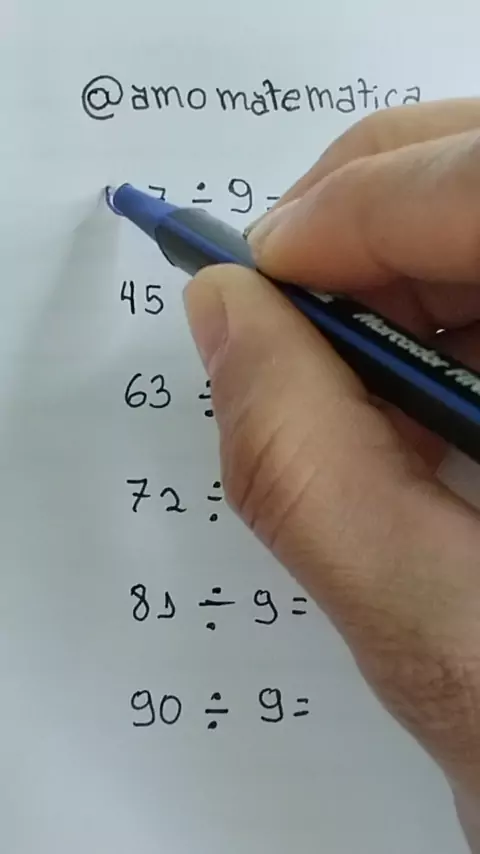 @amomatematica
÷ 9 =
45
63 ÷
72 ÷
81 ÷ 9 =
90 ÷ 9 =
Marcador Fin